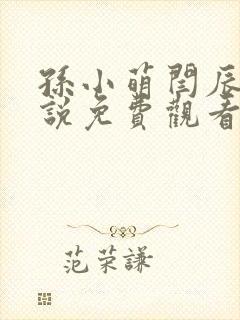 孫小萌閆辰
說免費觀看
范荣謙